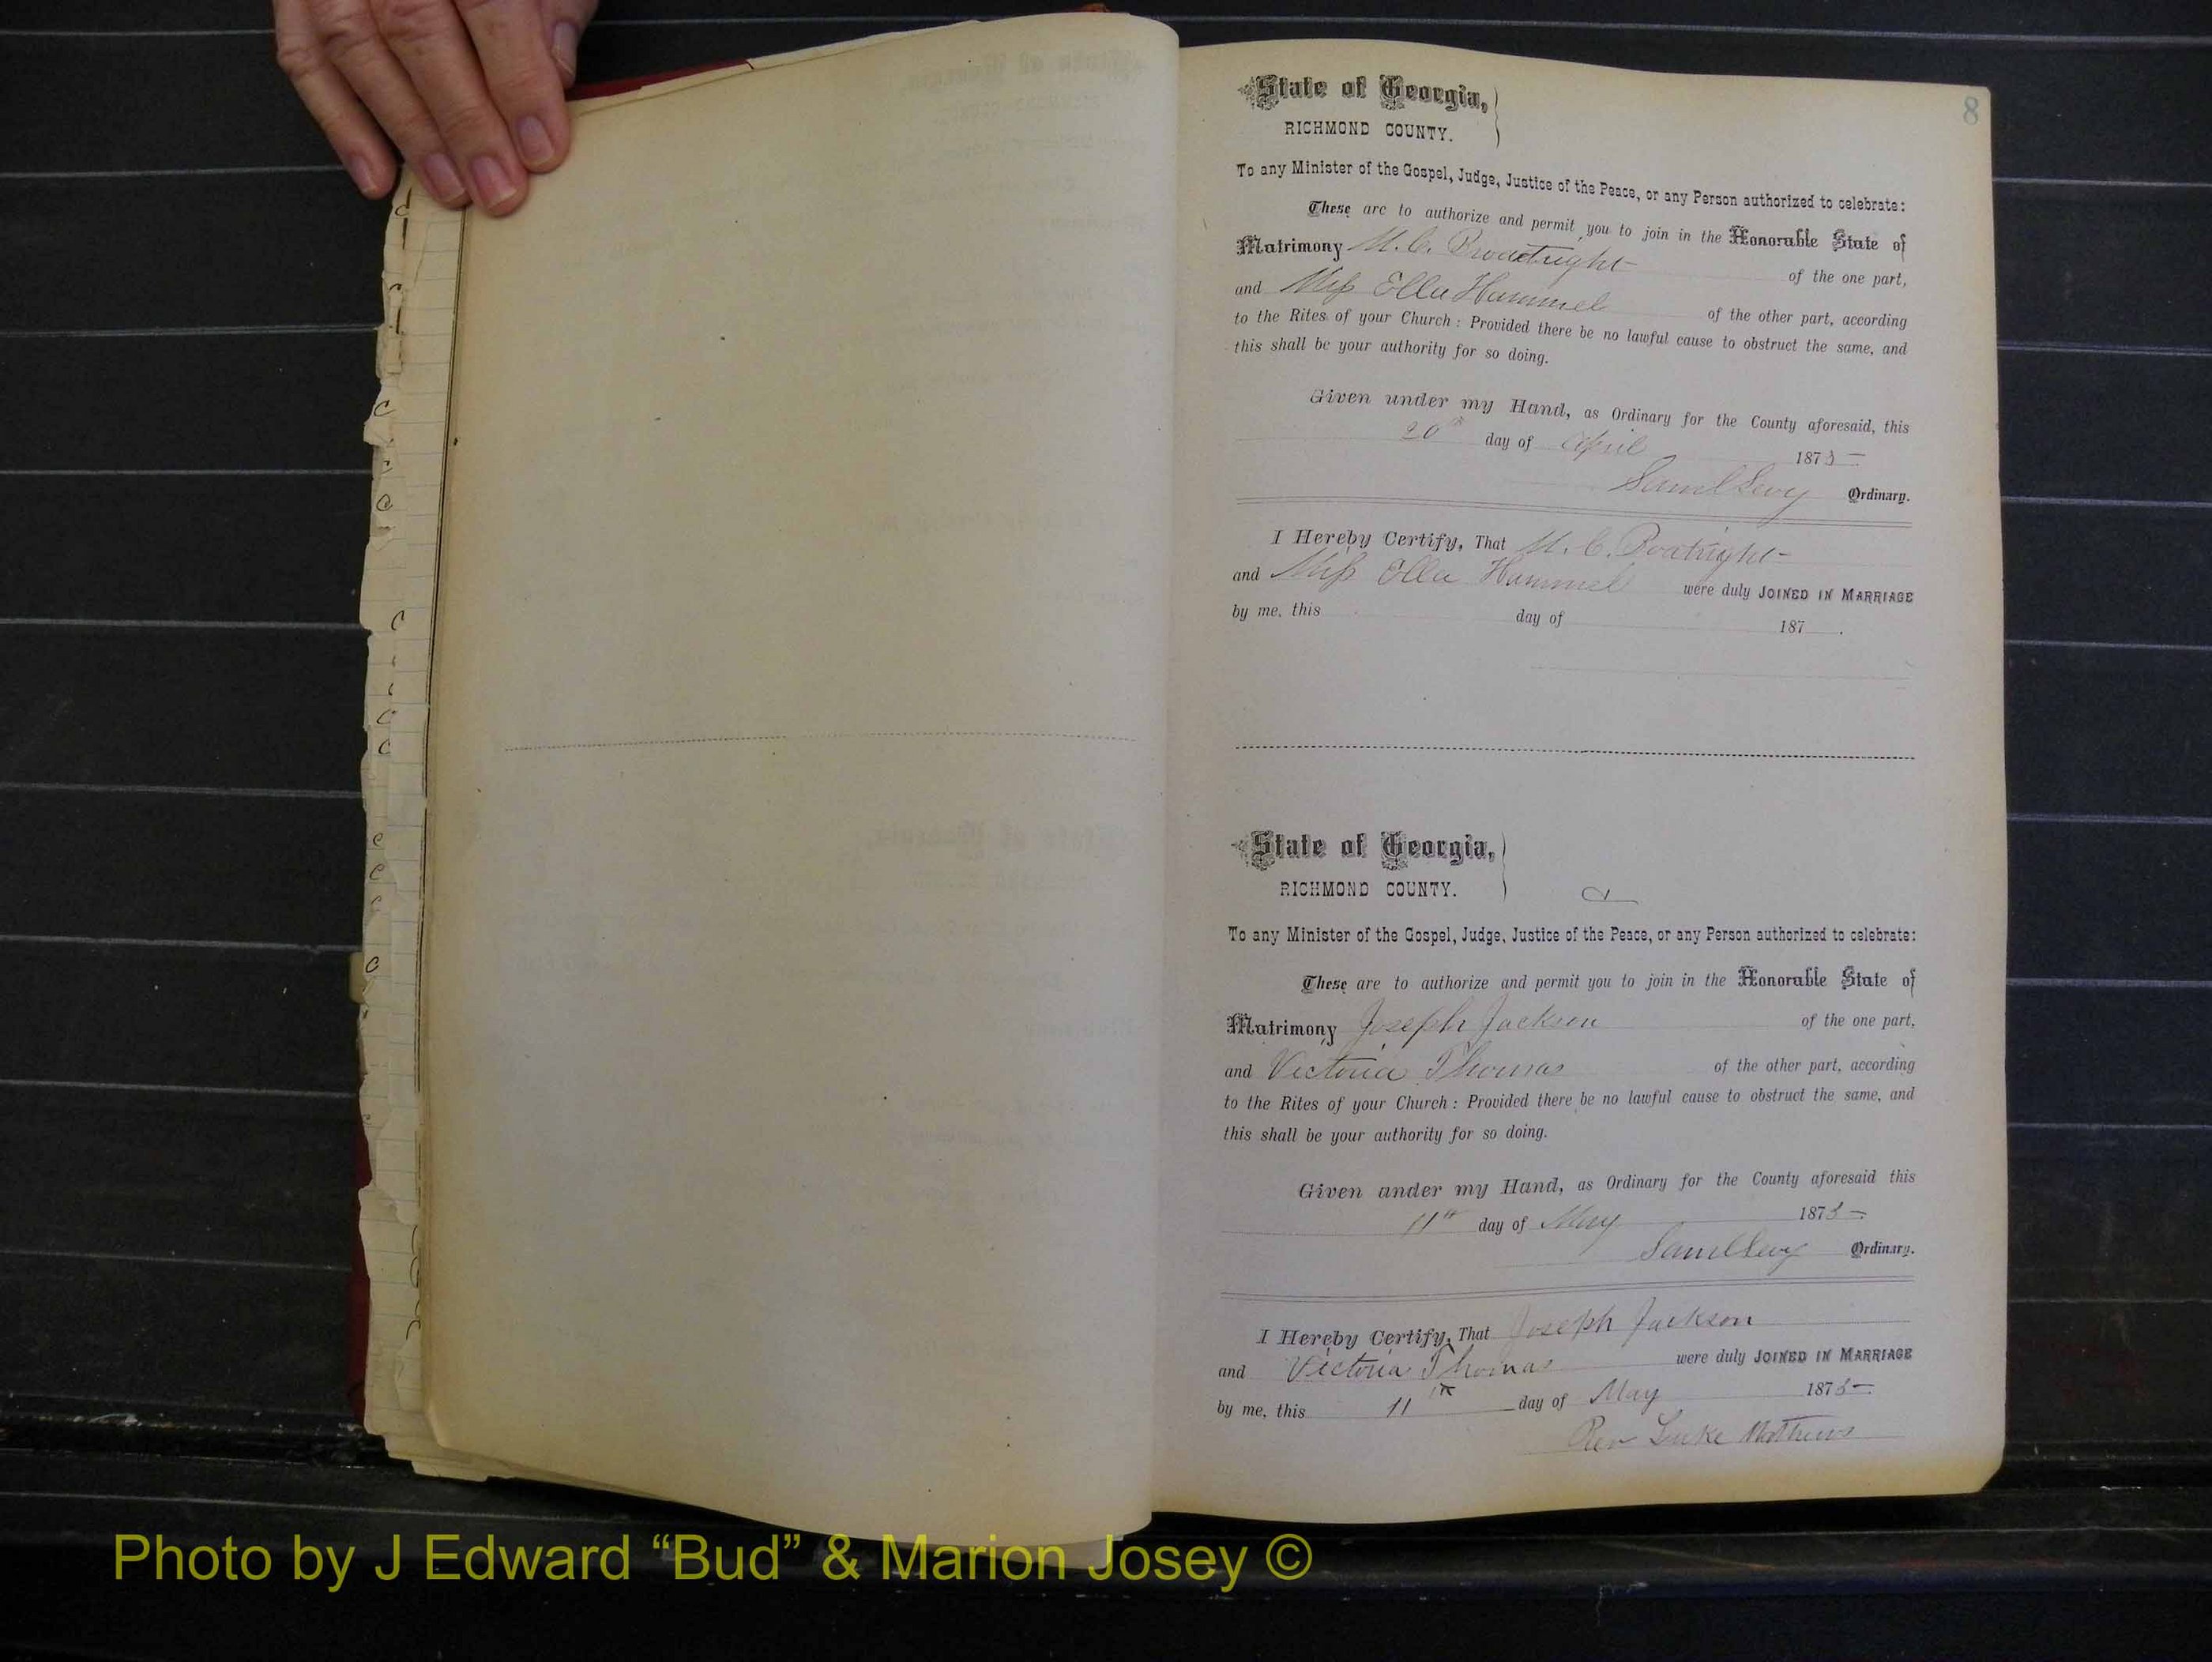 8
State of Georgia,
RICHMOND COUNTY.
To any Minister of the Gospel, Judge, Justice of the Peace, or any Person authorized to celebrate:
These are to authorize and permit you to join in the Honorable State of
Matrimony M. C. Boatright of the one part,
and Miss Ella Hammel of the other part, according
to the Rites of your Church: Provided there be no lawful cause to obstruct the same, and
this shall be your authority for so doing.
Given under my Hand, as Ordinary for the County aforesaid, this
20th day of April 1875
Saml Levy Ordinary.
I Hereby Certify, That M. C. Boatright
and Miss Ella Hammel were duly JOINED IN MARRIAGE
by me, this day of 187 .
State of Georgia,
RICHMOND COUNTY.
C
To any Minister of the Gospel, Judge, Justice of the Peace, or any Person authorized to celebrate:
These are to authorize and permit you to join in the Honorable State of
Matrimony Joseph Jackson of the one part,
and Victoria Thomas of the other part, according
to the Rites of your Church: Provided there be no lawful cause to obstruct the same, and
this shall be your authority for so doing.
Given under my Hand, as Ordinary for the County aforesaid this
11th day of May 1875
Saml Levy Ordinary.
I Hereby Certify, That Joseph Jackson
and Victoria Thomas were duly JOINED IN MARRIAGE
by me, this 11th day of May 1875
Rev Luke Mathews
Photo by J Edward “Bud” & Marion Josey ©